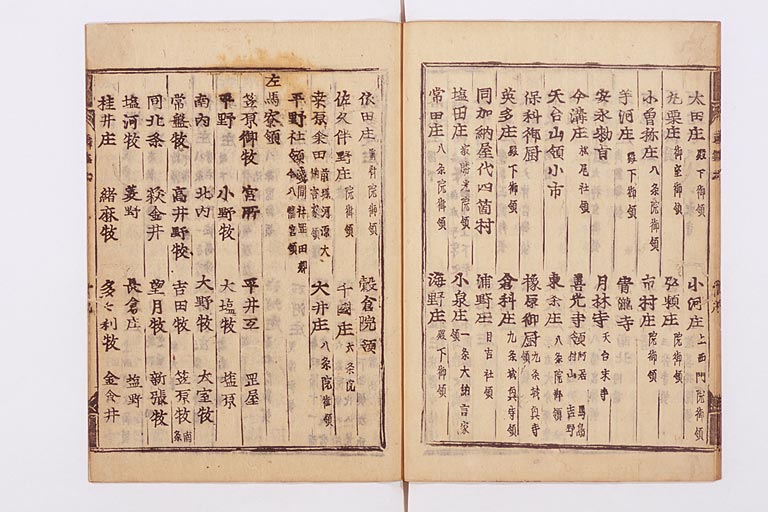 太田庄 殿下御領 小河庄 上西門院御領
丸栗庄 御室御領 弘瀬庄 院御領
小曾祢庄 八条院御領 市村庄 院御領
芋河庄 殿下御領 青瀧寺
安永勅旨 月林寺 天台末寺
今溝庄 松尾社領 善光寺領 阿居 馬島 村山 吉野
天台山領小市 東条庄 八条院御領
保科御厨 橡原御厨 九条城興寺
英多庄 殿下御領 倉科庄 九条城興寺領
同加納屋代四箇村 浦野庄 日吉社領
塩田庄 最勝光院領 小泉庄 一条大納言家領
常田庄 八条院御領 海野庄 殿下御領
依田庄 前斎院御領 穀倉院領
佐久伴野庄 院御領 千國庄 六条院
桒原余田 前堪河源大納言家領 大井庄 八条院御領
平野社領 浅間社岡田郷 今八幡宮領
左馬寮領
笠原御牧 宮所 平井弖 罡屋
平野 小野牧 大塩牧 塩原
南内 北内 大野牧 大室牧
常盤牧 高井野牧 吉田牧 笠原牧 南条
同北条 萩金井 望月牧 新張牧
塩河牧 菱野 長倉庄 塩野
桂井庄 緒麻牧 多々利牧 金倉井